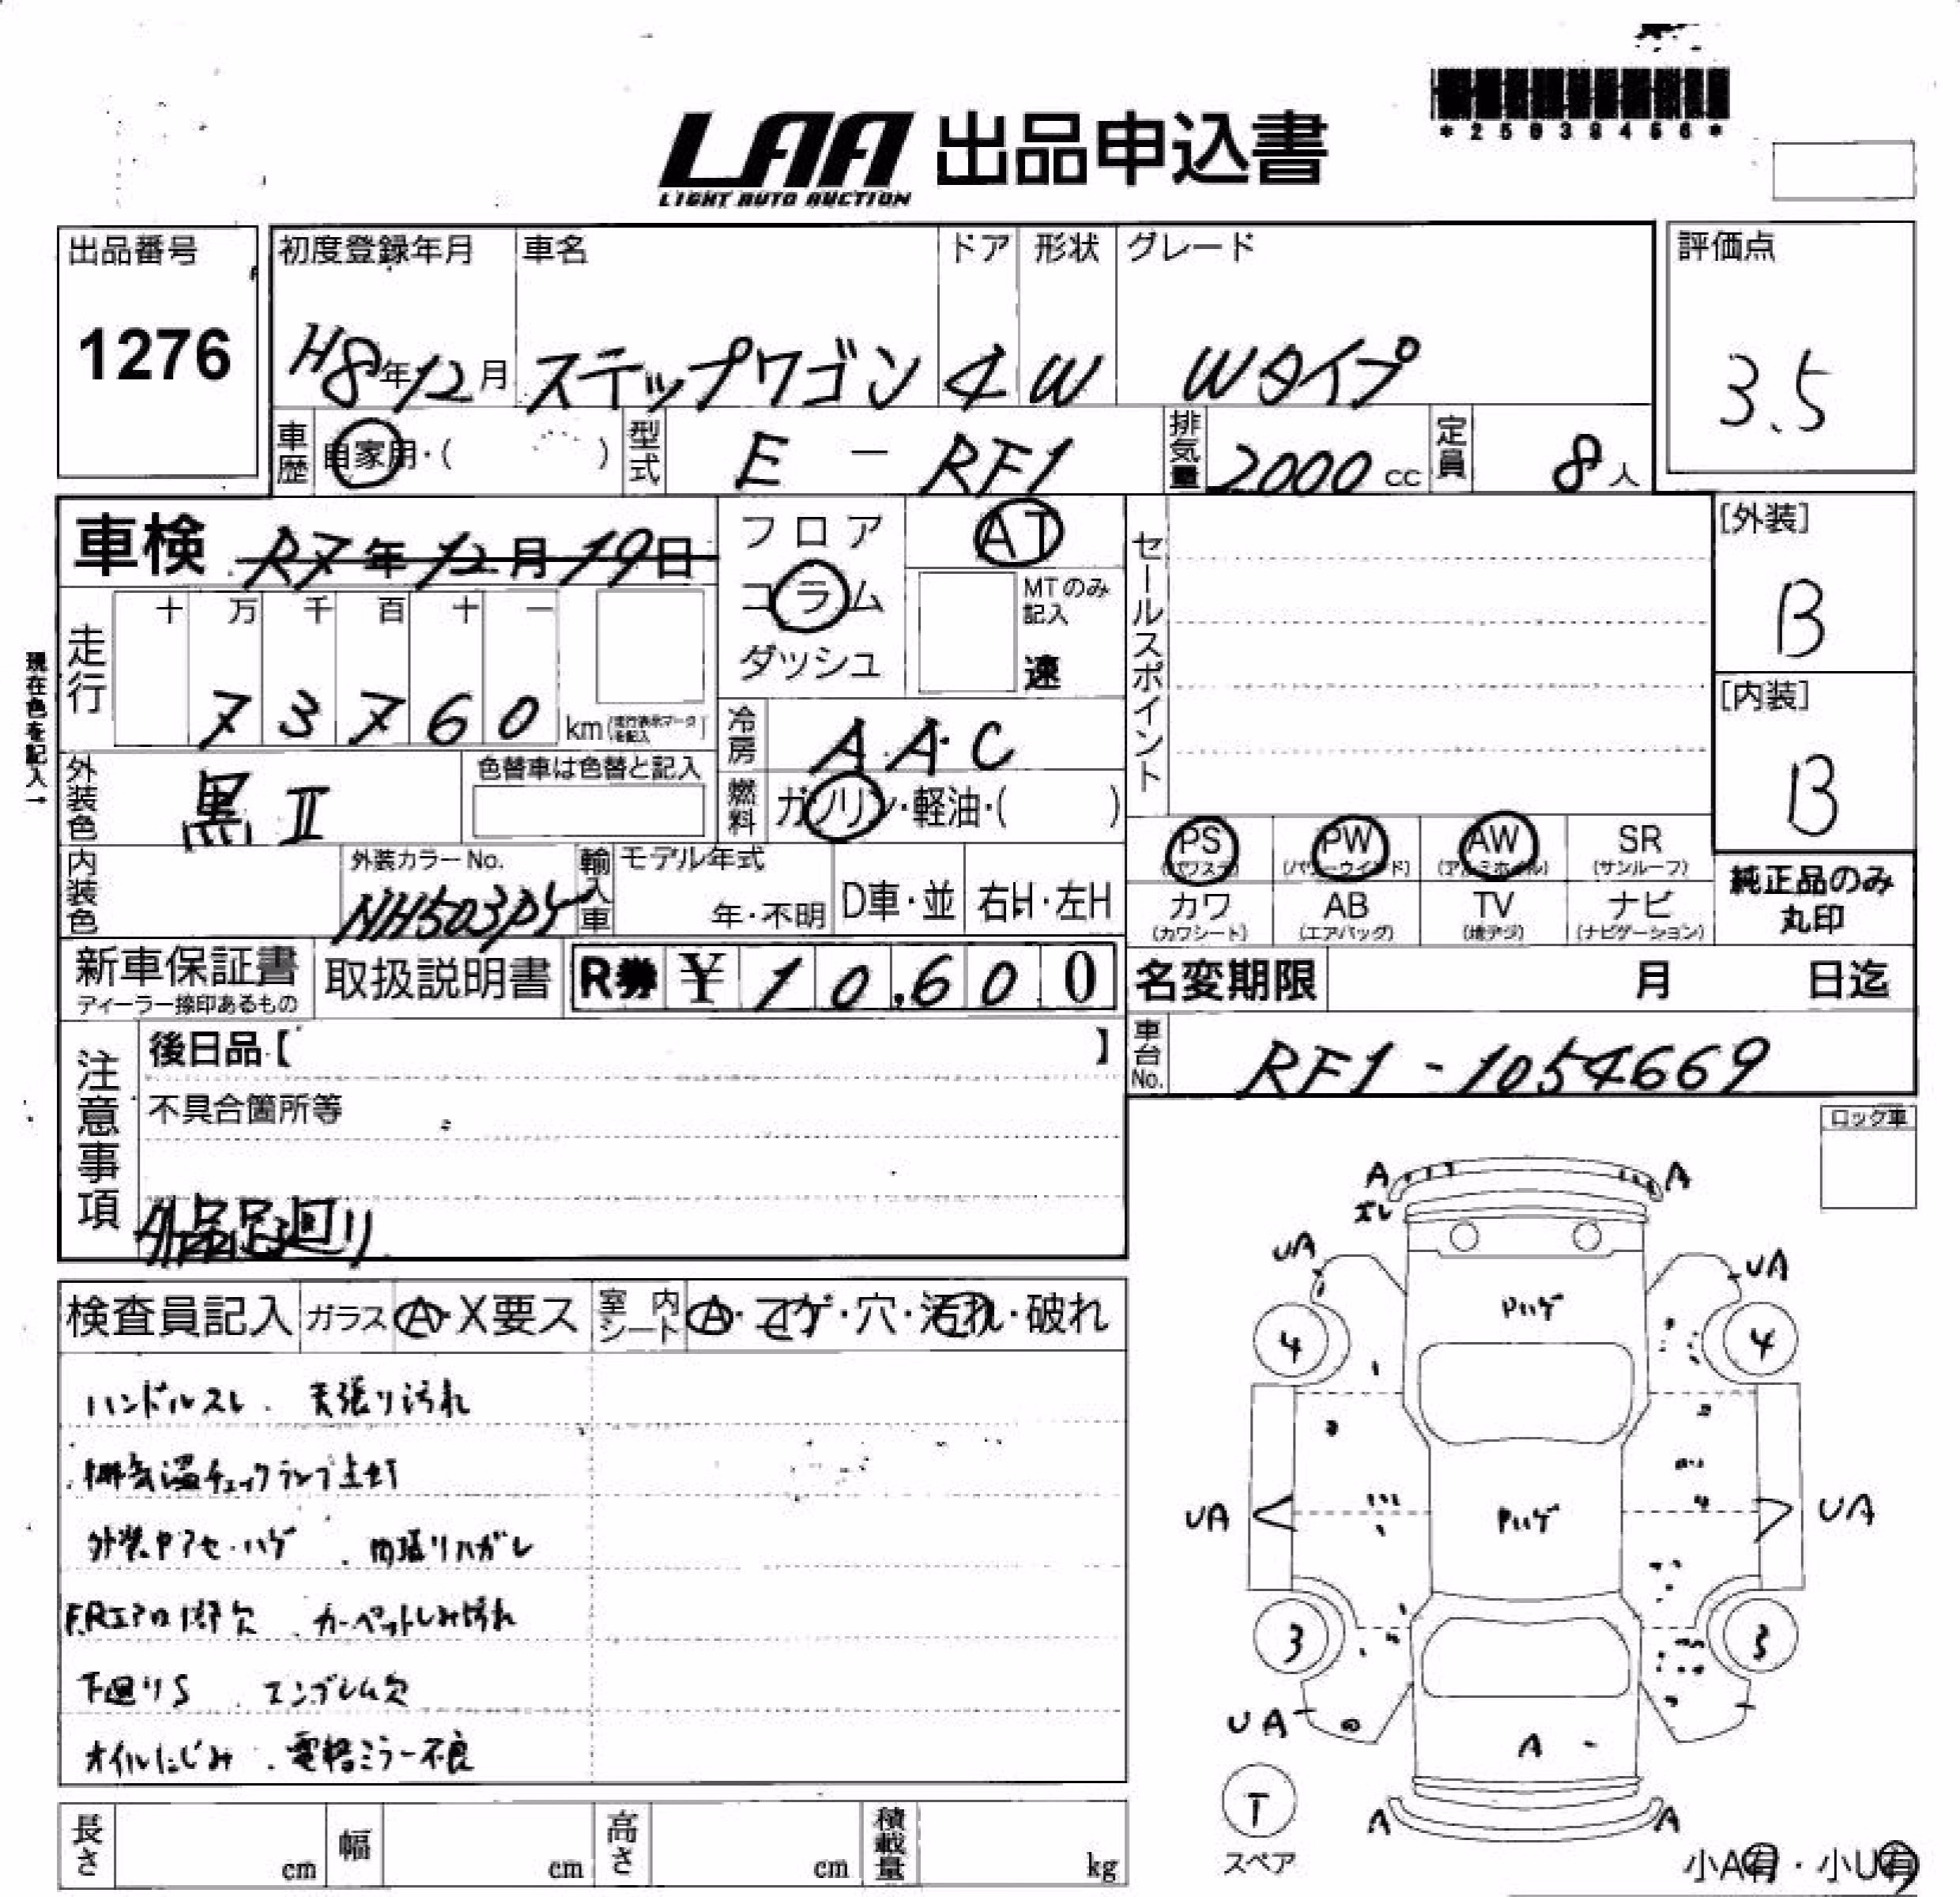 *25039456*
LAA 出品申込書
LIGHT AUTO AUCTION
出品番号
1276
初度登録年月 車名 ドア 形状 グレード
H8年12月 ステップワゴン 4 W Wタイプ
評価点
3.5
車歴 自家用・( ) 型式 E - RF1 排気量 2000cc 定員 8人
車検 R7年12月19日
フロア
コラム
ダッシュ
AT
MTのみ記入
速
セールスポイント
[外装]
B
[内装]
B
現在色を記入→
走行
十 万 千 百 十 一
7 3 7 6 0 km(走行表示マークを記入)
冷房 A.A.C
燃料 ガソリン・軽油・( )
外装色 黒II
色替車は色替と記入
内装色
外装カラーNo.
NH503PY
輸入車 モデル年式
年・不明 D車・並 右H・左H
PS (パワステ)
PW (パワーウインド)
AW (アルミホイル)
SR (サンルーフ)
カワ (カワシート)
AB (エアバッグ)
TV (地デジ)
ナビ (ナビゲーション)
純正品のみ
丸印
新車保証書
ディーラー捺印あるもの
取扱説明書
R券 ¥10,600
名変期限 月 日迄
車台No. RF1-1054669
注意事項
後日品【 】
不具合箇所等
外品足廻り
ロック車
検査員記入 ガラス A・X要ス 室内シート A・コゲ・穴・汚れ・破れ
ハンドルスレ. 天張り汚れ
排気温チェックランプ点灯
外装ヤアセ・ハゲ . 内張りハガレ
F.Rエアロ1部欠 . カーペットしみ汚れ
下廻りS . エンブレム欠
オイルにじみ . 電格ミラー不良
A A
ズレ
UA UA
Pハゲ
4 4
UA Pハゲ UA
3 3
UA
A
T
スペア
A A
小A有・小U有
長さ cm 幅 cm 高さ cm 積載量 kg